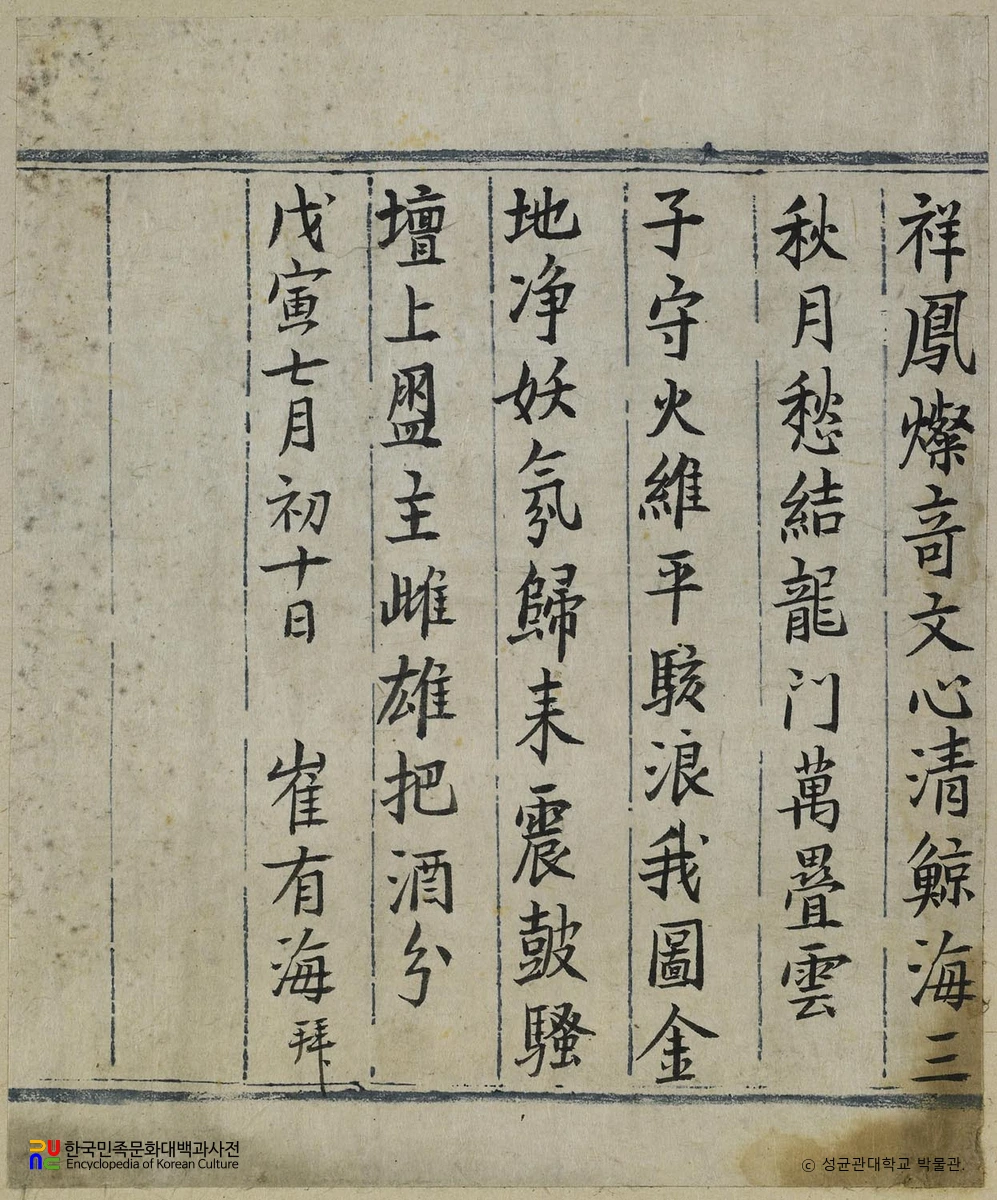 祥鳳燦竒文心清鯨海三
秋月愁結龍门萬疊雲
子守火維平駭浪我圖金
地净妖氛歸来震鼓騷
壇上盟主雌雄把酒分
戊寅七月初十日 崔有海拜
한국민족문화대백과사전
Encyclopedia of Korean Culture
© 성균관대학교 박물관.